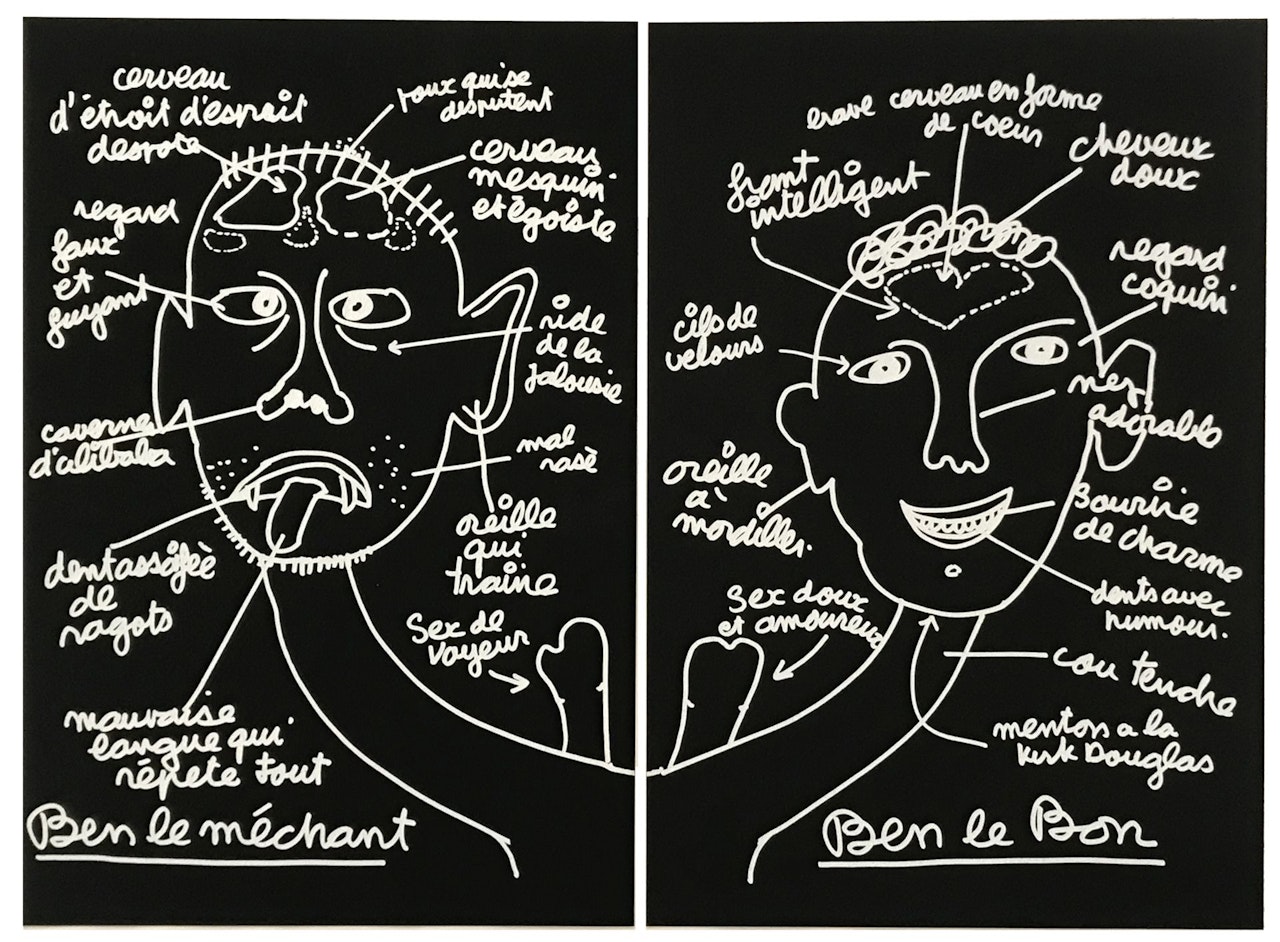 cerveau
d'étroit d'esprit
despote
poux qui se
desputent
cerveau
mesquin
et égoiste
regard
faux
et
fuyant
ride
de la
Jalousie
caverne
d'alibaba
mal
rasé
dent assoifeè
de
ragots
oreille
qui
traine
Sex de
voyeur
mauvaise
langue qui
répete tout
Ben le méchant
cerveau en forme
de coeur
front
intelligent
cheveux
doux
regard
coquin
cils de
velours
nez
adorable
oreille
a'
mordiller.
Sourire
de charme
dents avec
humour.
Sex doux
et amoureux
cou tendre
menton a la
Kirk Douglas
Ben le Bon